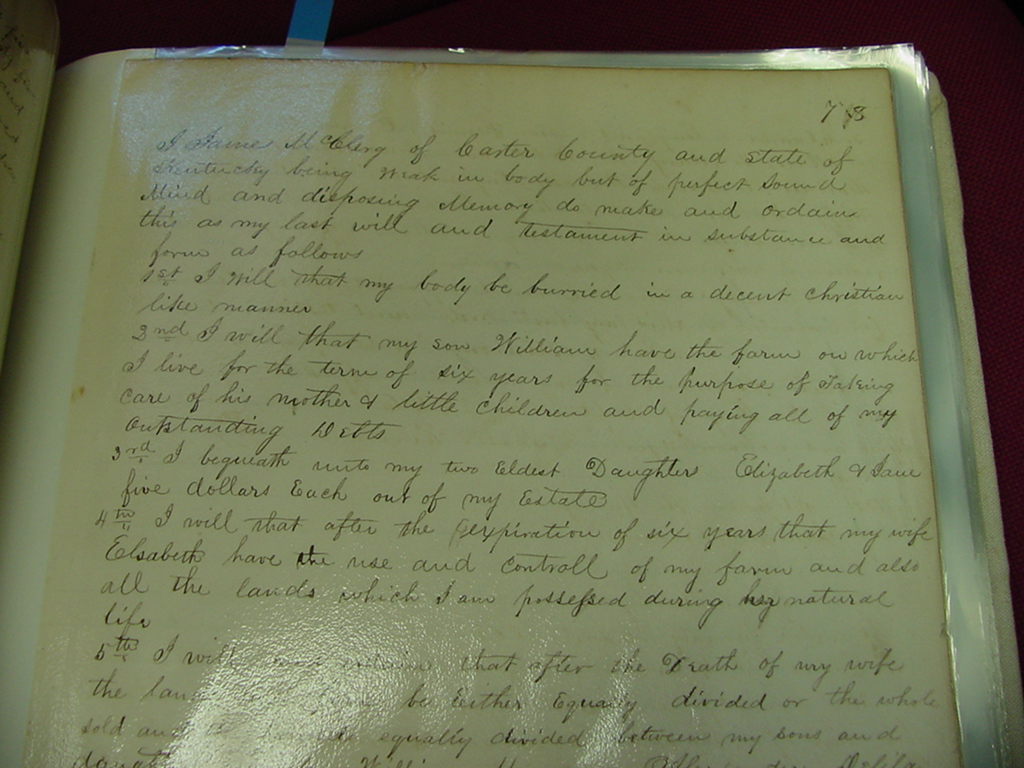 78
I James McClerg of Carter County and state of
Kentucky being weak in body but of perfect Sound
Mind and disposing Memory do make and ordain
this as my last will and testament in substance and
form as follows
1st I will that my body be burried in a decent christian
like manner
2nd I will that my son William have the farm on which
I live for the term of six years for the purpose of Taking
care of his mother & little children and paying all of my
Outstanding Debts
3rd I bequeath unto my two Eldest Daughters Elizabeth & Jane
five dollars Each out of my Estate
4th I will that after the expiration of six years that my wife
Elsabeth have the use and controll of my farm and also
all the lands which I am possessed during her natural
life
5th I will and that after the Death of my wife
the be Either Equally divided or the whole
sold and equally divided between my sons and